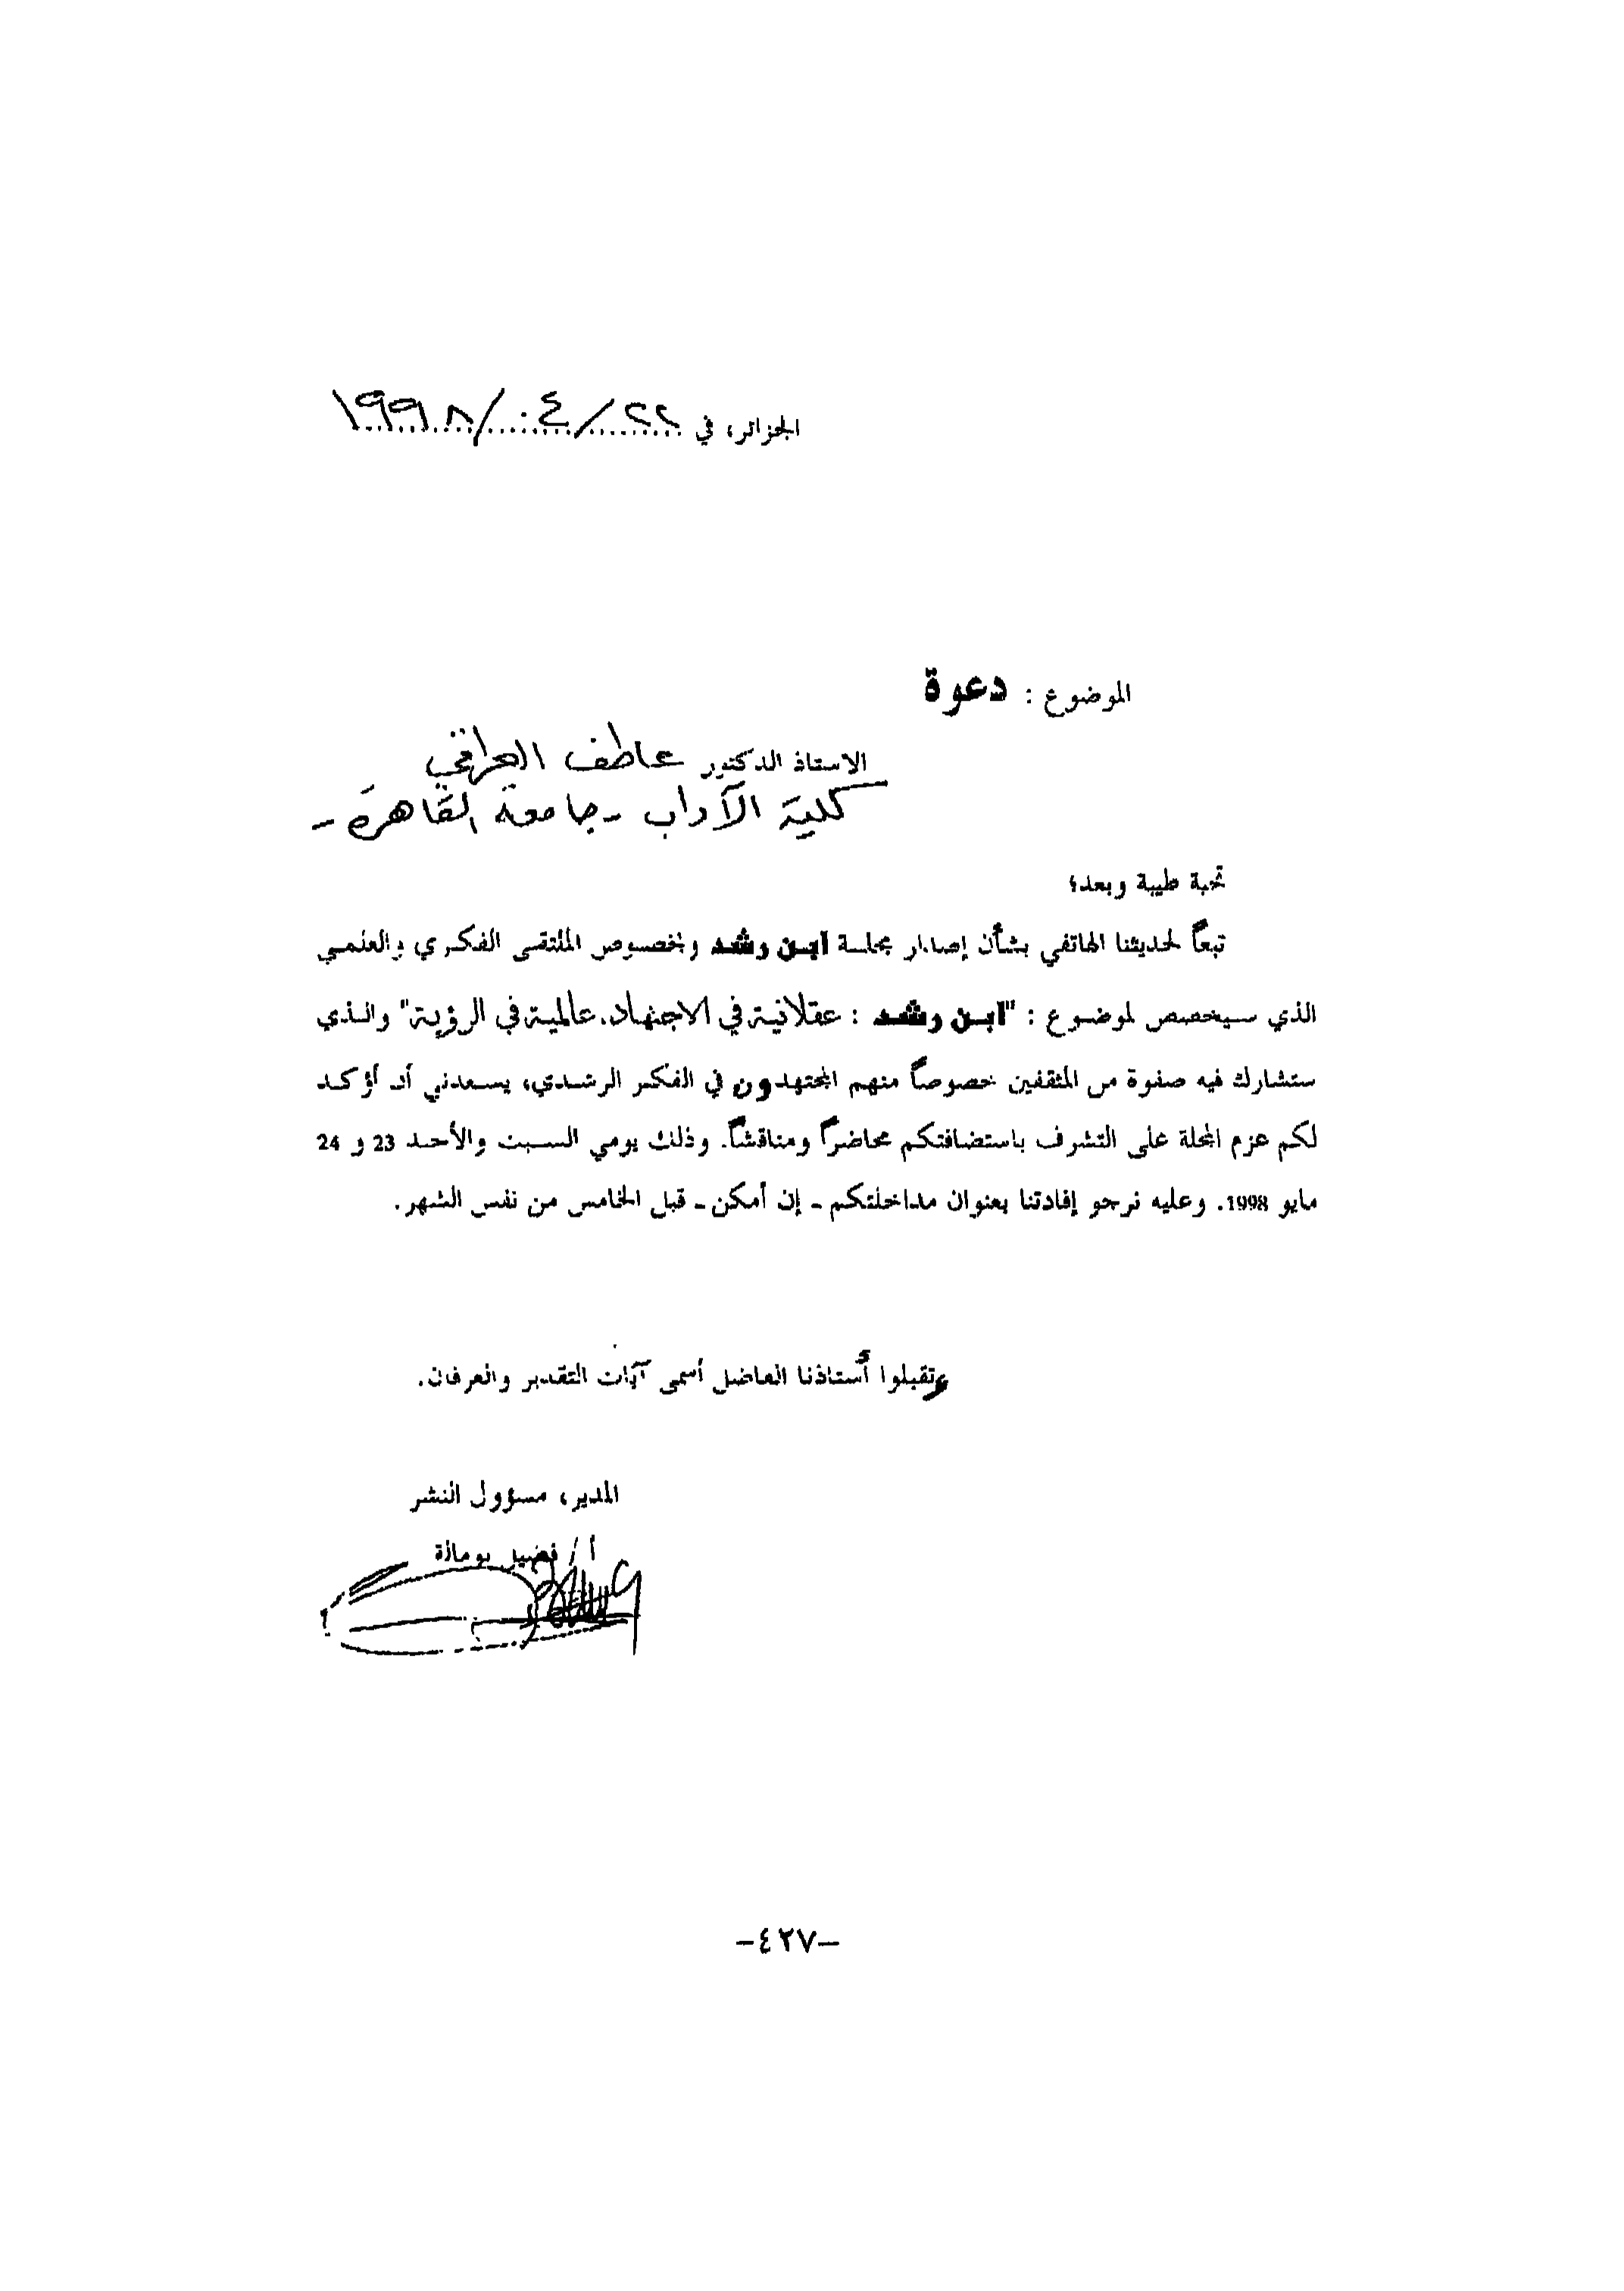 الجزائر، في ٢٢/٠٤/١٩٩٨
الموضوع : دعوة
الاستاذ الدكتور عاطف العراقي
كلية الآداب - جامعة القاهرة -
تحية طيبة وبعد؛
تبعاً لحديثنا الهاتفي بشأن إصدار مجلة ابن رشد وبخصوص الملتقى الفكري والعلمي
الذي سيخصص لموضوع : "ابن رشد : عقلانية في الاجتهاد، عالمية في الرؤية" والذي
ستشارك فيه صفوة من المثقفين خصوصاً منهم المجتهدون في الفكر الرشدي، يسعدني أن أؤكد
لكم عزم المجلة على التشرف باستضافتكم محاضراً ومناقشاً. وذلك يومي السبت والأحد 23 و 24
مايو 1998. وعليه نرجو إفادتنا بعنوان مداخلتكم - إن أمكن - قبل الخامس من نفس الشهر.
وتقبلوا أستاذنا الفاضل أسمى آيات التقدير والعرفان.
المدير، مسؤول النشر
أ / فضيل بومالة
-٤٢٧-